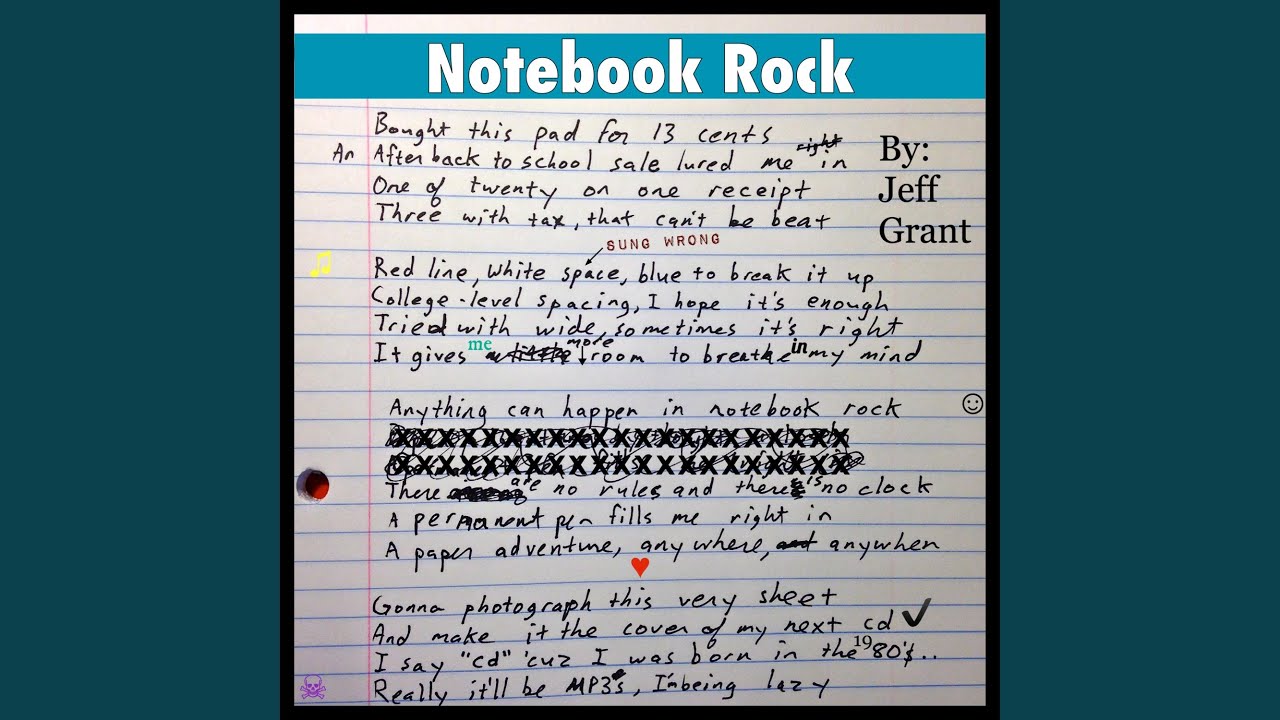 Notebook Rock
By:
Jeff
Grant
Bought this pad for 13 cents
right
An After back to school sale lured me in
One of twenty on one receipt
Three with tax, that can't be beat
SUNG WRONG
Red line, white space, blue to break it up
College-level spacing, I hope it's enough
Tried with wide, sometimes it's right
me more
It gives room to breathe in my mind
Anything can happen in notebook rock
XXXXXXXXXXXXXXXXXXXXX
XXXXXXXXXXXXXXXXXXXXX
There are no rules and there is no clock
A permanent pen fills me right in
A paper adventure, anywhere, and anywhen
Gonna photograph this very sheet
And make it the cover of my next cd
I say "cd" 'cuz I was born in the 1980's..
Really it'll be MP3's, I'm being lazy